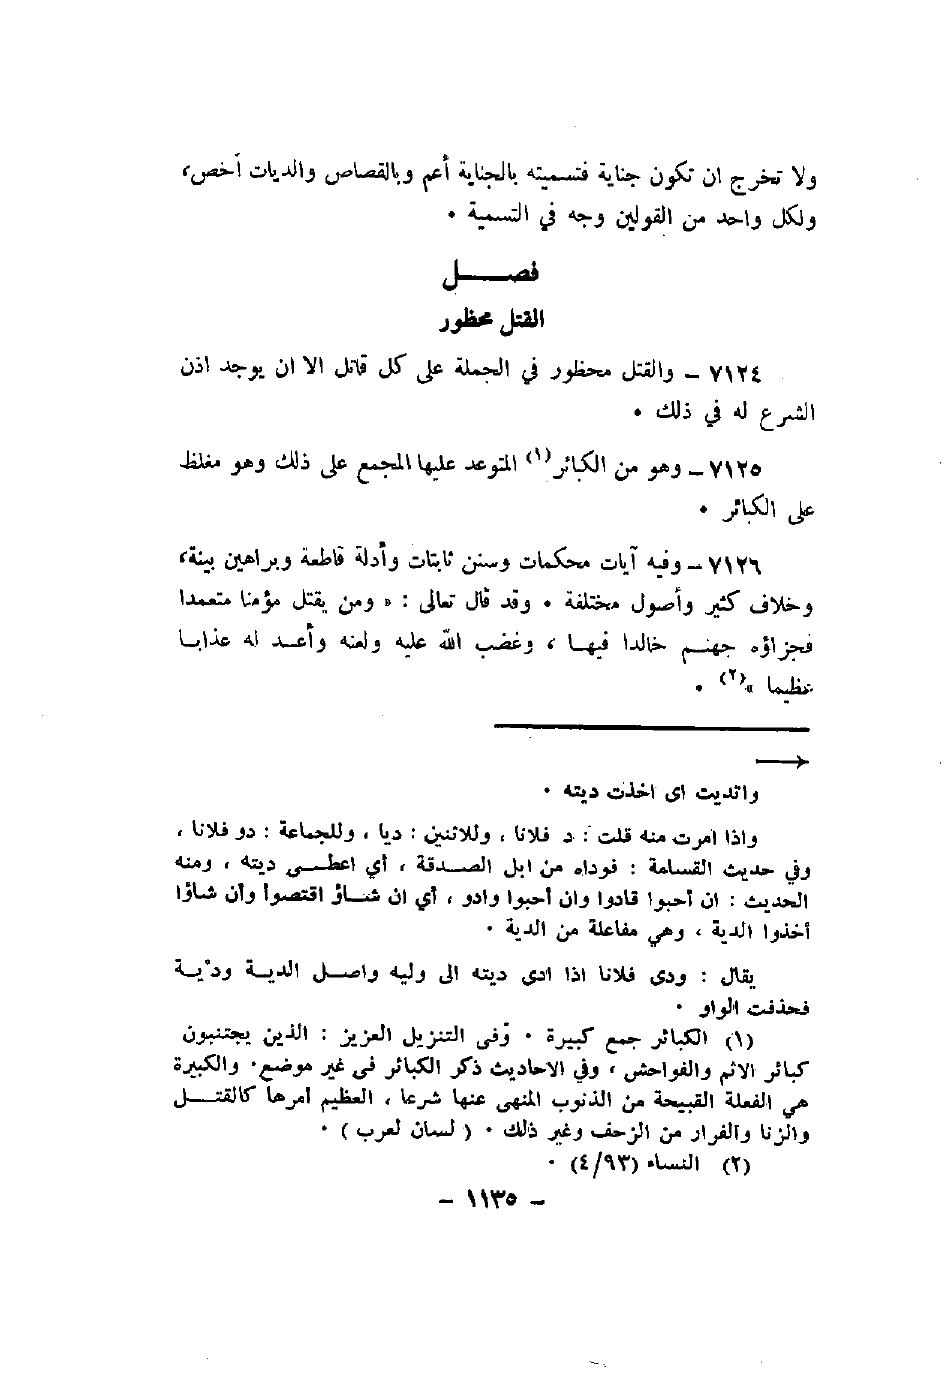 ولا تخرج ان تكون جناية فتسميته بالجناية أعم وبالقصاص والديات أخص،
ولكل واحد من القولين وجه في التسمية .
فصـــــل
القتل محظور
٧١٢٤ – والقتل محظور في الجملة على كل قاتل الا ان يوجد اذن
الشرع له في ذلك .
٧١٢٥ – وهو من الكبائر(١) المتوعد عليها المجمع على ذلك وهو مغلظ
على الكبائر .
٧١٢٦ – وفيه آيات محكمات وسنن ثابتات وأدلة قاطعة وبراهين بينة،
وخلاف كثير وأصول مختلفة . وقد قال تعالى : « ومن يقتل مؤمنا متعمدا
فجزاؤه جهنـم خالدا فيهـا ، وغضب الله عليه ولعنه وأعـد له عذابـا
عظيما »(٢) .
واتديت اى اخذت ديته .
واذا امرت منه قلت : د فلانا ، وللاثنين : ديا ، وللجماعة : دو فلانا ،
وفي حديث القسامة : فوداه من ابل الصـدقة ، أي اعطـى ديته ، ومنه
الحديث : ان أحبوا قادوا وان أحبوا وادو ، أي ان شـاؤ اقتصوا وان شاؤا
أخذوا الدية ، وهي مفاعلة من الدية .
يقال : ودى فلانا اذا ادى ديته الى وليه واصـل الديـة ودْيـة
فحذفت الواو .
(١) الكبائر جمع كبيرة . وفى التنزيل العزيز : الذين يجتنبون
كبائر الاثم والفواحش ، وفي الاحاديث ذكر الكبائر فى غير موضع . والكبيرة
هي الفعلة القبيحة من الذنوب المنهى عنها شرعا ، العظيم أمرها كالقتـل
والزنا والفرار من الزحف وغير ذلك . ( لسان لعرب ) .
(٢) النساء (٤/٩٣) .
– ١١٣٥ –